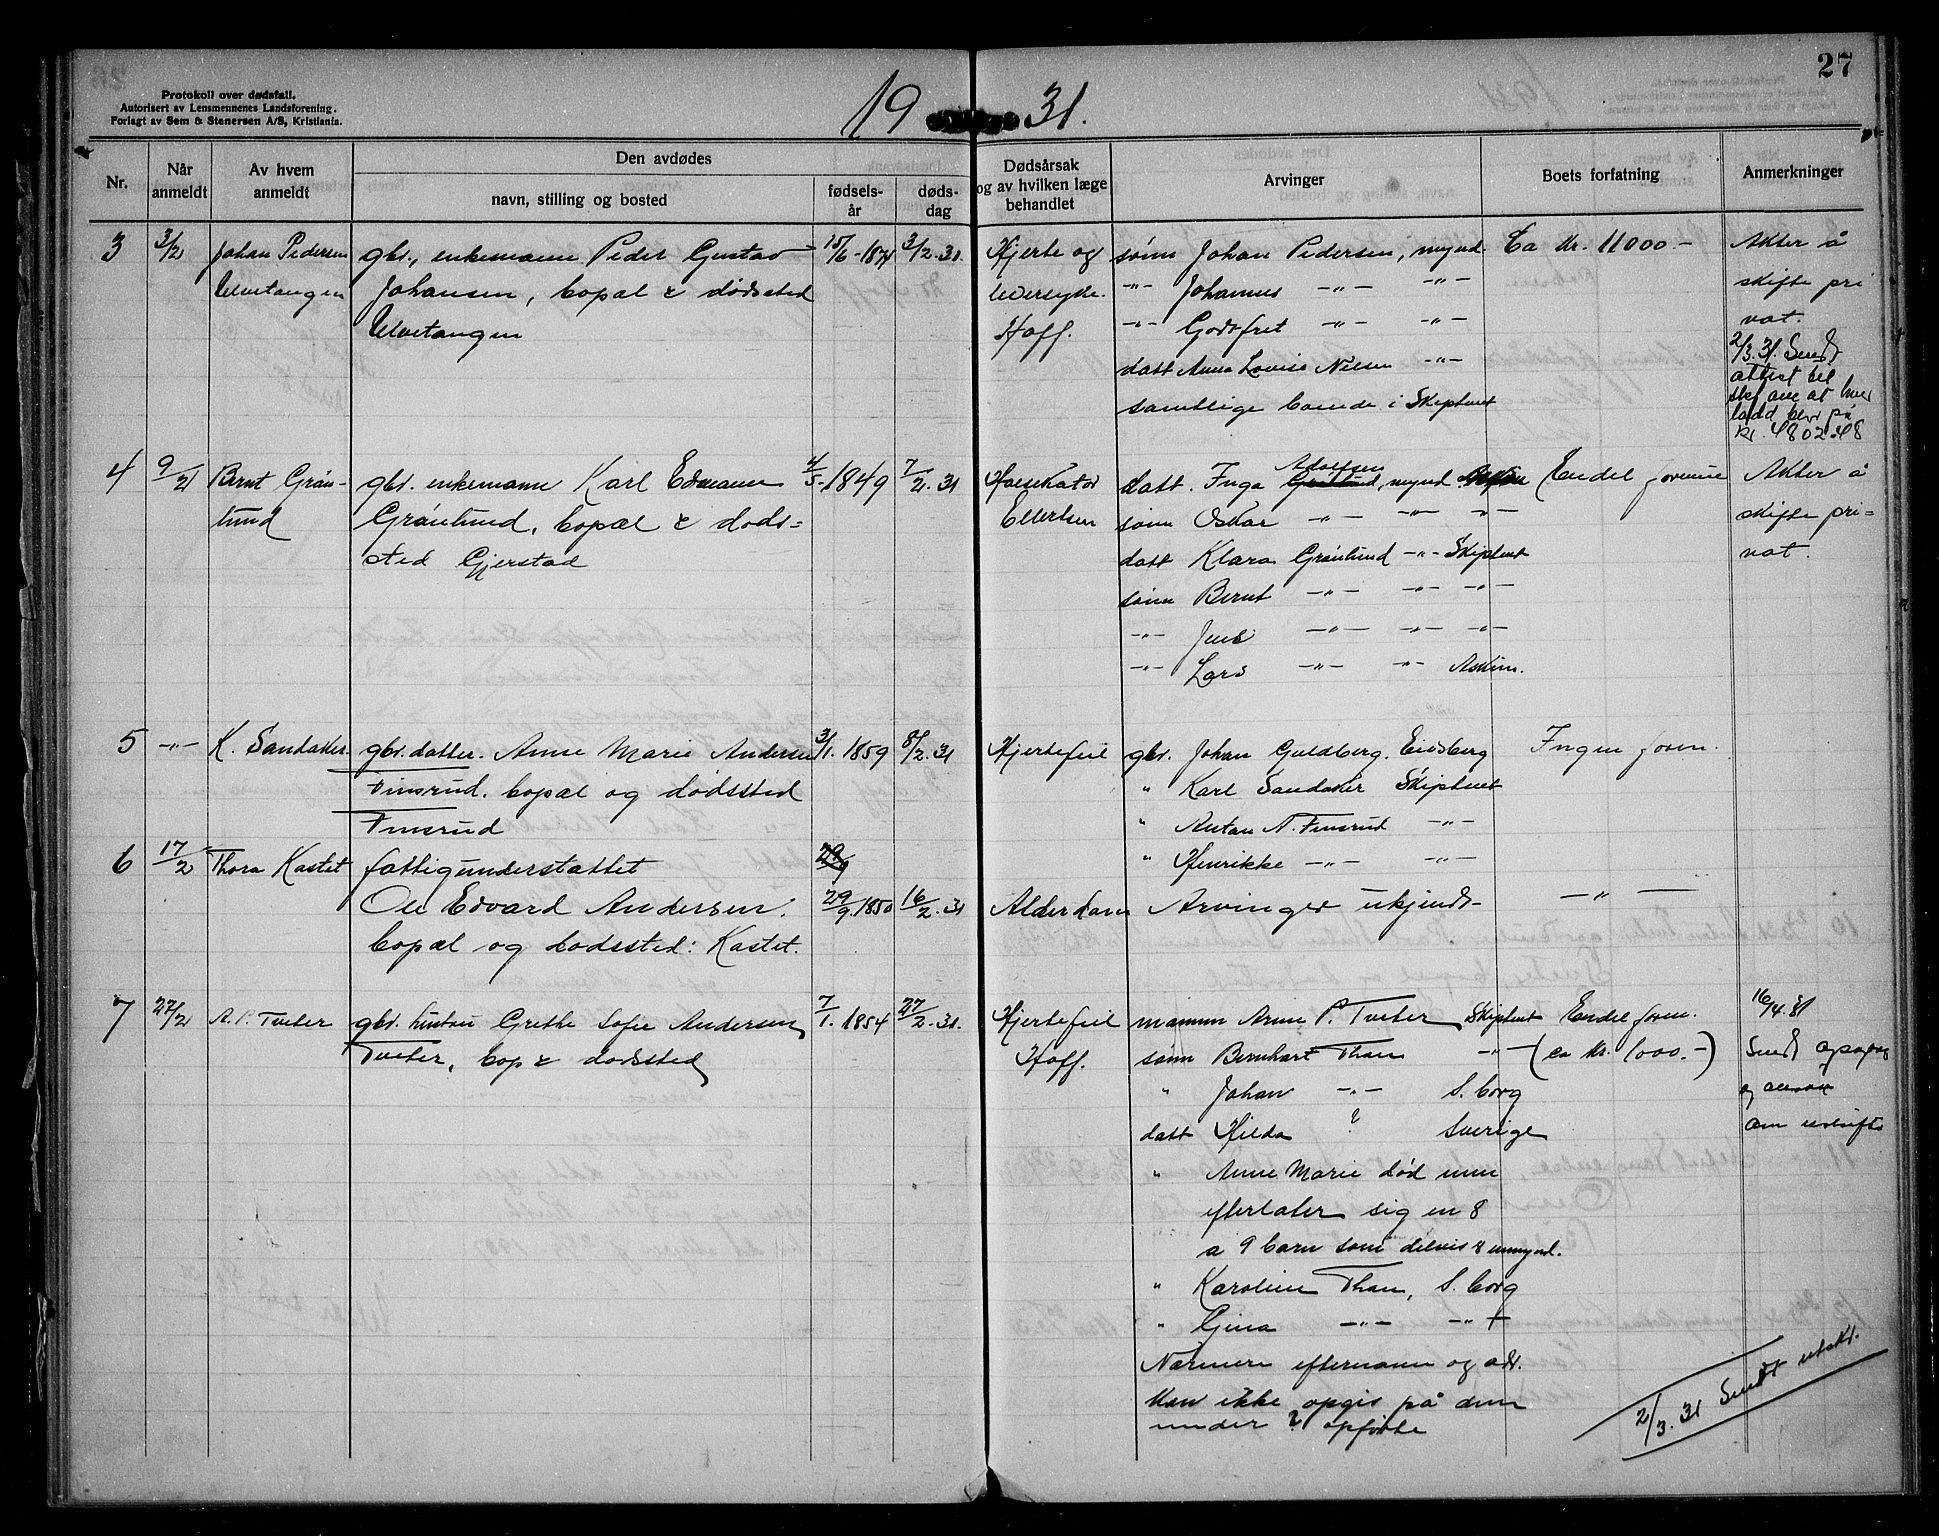 27
Protokoll over dødsfall.
Autorisert av Lensmennenes Landsforening.
Forlagt av Sem & Stenersen A/S, Kristiania.
19 31.
Nr.
Når anmeldt
Av hvem anmeldt
Den avdødes
navn, stilling og bosted
fødsels-år
døds-dag
Dødsårsak og av hvilken læge behandlet
Arvinger
Boets forfatning
Anmerkninger
3 3/2 Johan Pedersen gbr., enkemann Peder Gustav 15/6 - 3/2.31. Hjerte og sønn Johan Pedersen, mynd. Ca Kr. 11000.- Akter å
Ulvetangen Johansen, bopæl & dødssted leversyke. -"- Johannes -"- -"- skifte pri
Ulvetangen Hoff. -"- Godtfret -"- -"- vat.
datt Anna Lovise Nilsen -"- 2/3.31. Sendt
attest til
samtlige boende i Skiptvet
Kr. 4802.48
4 9/2 Bernt Grøn- gbr. enkemann Karl Edvann 4/5.1849 7/2.31 Hoesekator datt. Inga Adolfsen, mynd Endel formue Akter å
lund Grønlund, bopæl & døds= Ellertsen sønn Oskar -"- -"- -"- skifte pri=
sted Gjerstad datt Klara Grønlund -"- Skiptvet vat.
sønn Bernt -"- -"- -"-
-"- Jens -"- -"- -"-
-"- Lars -"- -"- Askim.
5 -"- K. Sandaker gbr. datter. Anne Marie Andersen 3/1. 1859 8/2.31 Hjertefeil gbr. Johan Guldberg. Eidsberg Ingen form.
Finsrud. bopæl og dødssted " Karl Sandaker Skiptvet
Finsrud " Anton N. Finsrud -"-
6 17/2 Thora Kastet fattigunderstøttet 29/9 " Henrikke -"- -"-
Ole Edvard Andersen. 29/9.1850 16/2.31 Alderdom Arvinger ukjendt- -"-
bopæl og dødssted: Kastet.
7 27/2 A. P. Tveter gbr. hustru Grethe Sofie Andersen 7/1. 1854 27/2.31. Hjertefeil mannen Arne P. Tveter Skiptvet Endel form. 16/4.31
Tveter, bop & dødssted Hoff. sønn Bernhart Thon -"- (ca Kr. 1000.-) Sendt
" Johan -"- S. borg og
datt Hilda ? Sverige om utskift
" Anne Marie død men
efterlater sig en 8
a 9 barn som delvis & unmynd.
" Karoline Thon, S. borg
" Gina -"- -"-
Nærmere efternavn og adr.
kan ikke opgis på dem
under ? opførte
2/3.31 Sendt utskr.